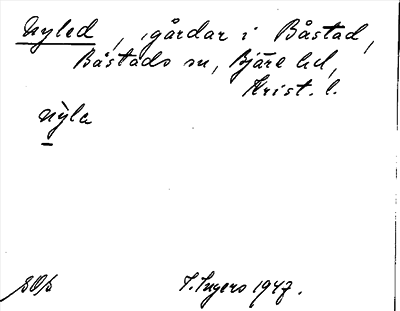 Nyled, gårdar i Båstad,
Båstads sn, Bjäre hd,
Krist. l.
nỳla
I. Ingers 1947.